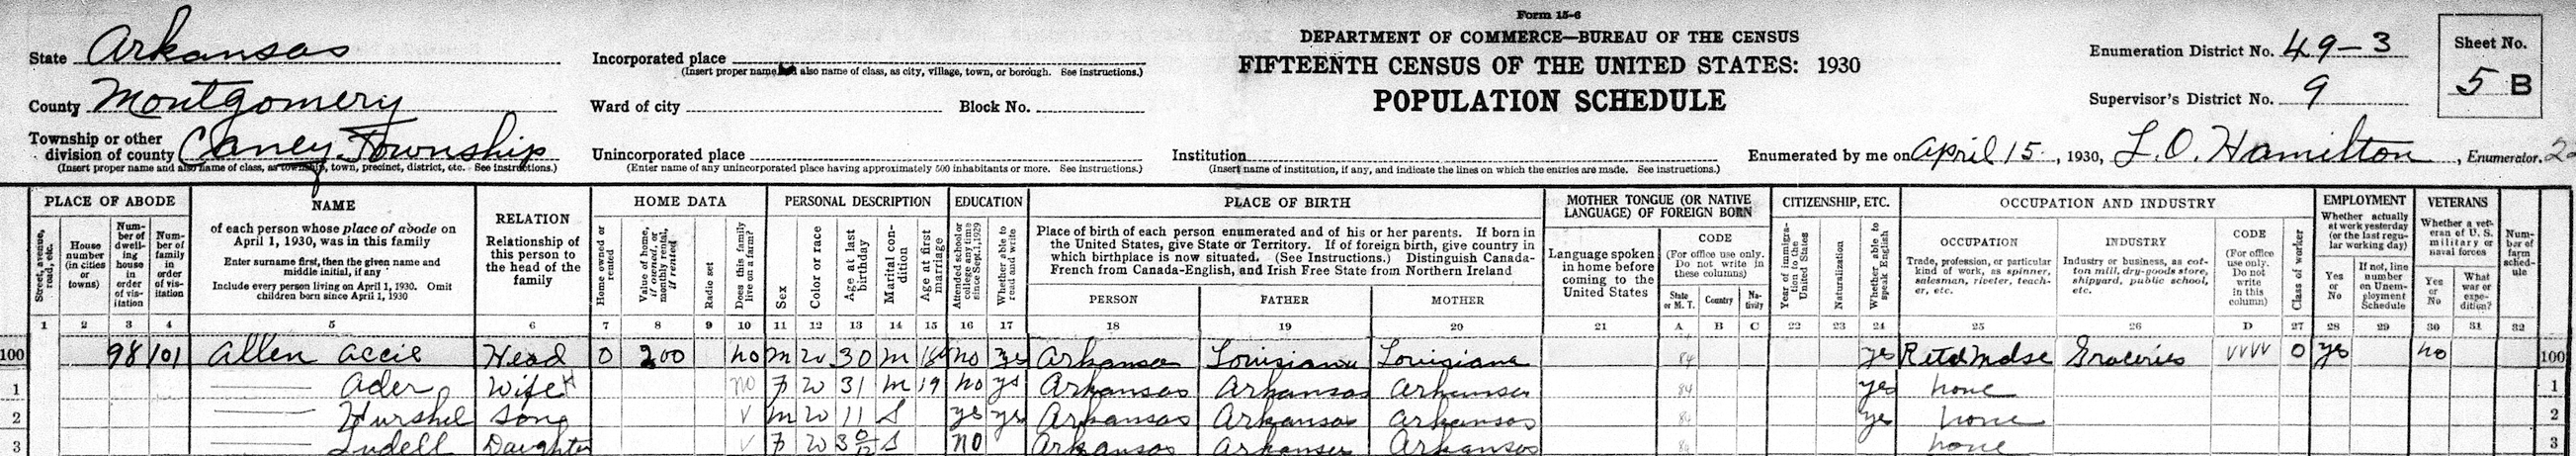 Form 15-6
State Arkansas
Incorporated place
(Insert proper name and also name of class, as city, village, town, or borough. See instructions.)
DEPARTMENT OF COMMERCE—BUREAU OF THE CENSUS
Enumeration District No. 49-3
Sheet No.
County Montgomery
Ward of city
Block No.
FIFTEENTH CENSUS OF THE UNITED STATES: 1930
POPULATION SCHEDULE
Supervisor's District No. 9
5 B
Township or other
division of county Caney Township
(Insert proper name and also name of class, as township, town, precinct, district, etc. See instructions.)
Unincorporated place
(Enter name of any unincorporated place having approximately 500 inhabitants or more. See instructions.)
Institution
(Insert name of institution, if any, and indicate the lines on which the entries are made. See instructions.)
Enumerated by me on April 15, 1930, L. O. Hamilton, Enumerator.
PLACE OF ABODE
Street, avenue, road, etc.
House number (in cities or towns)
Number of dwelling house in order of visitation
Number of family in order of visitation
NAME
of each person whose place of abode on
April 1, 1930, was in this family
Enter surname first, then the given name and
middle initial, if any
Include every person living on April 1, 1930. Omit
children born since April 1, 1930
RELATION
Relationship of
this person to
the head of the
family
HOME DATA
Home owned or rented
Value of home, if owned, or monthly rental, if rented
Radio set
Does this family live on a farm?
PERSONAL DESCRIPTION
Sex
Color or race
Age at last birthday
Marital condition
Age at first marriage
EDUCATION
Attended school or college any time since Sept. 1, 1929
Whether able to read and write
PLACE OF BIRTH
Place of birth of each person enumerated and of his or her parents. If born in
the United States, give State or Territory. If of foreign birth, give country in
which birthplace is now situated. (See Instructions.) Distinguish Canada-
French from Canada-English, and Irish Free State from Northern Ireland
PERSON FATHER MOTHER
MOTHER TONGUE (OR NATIVE
LANGUAGE) OF FOREIGN BORN
Language spoken
in home before
coming to the
United States
CODE
(For office use only.
Do not write in
these columns)
State or M. T.
Country
Nativity
CITIZENSHIP, ETC.
Year of immigration to the United States
Naturalization
Whether able to speak English
OCCUPATION AND INDUSTRY
OCCUPATION
Trade, profession, or particular
kind of work, as spinner,
salesman, riveter, teach-
er, etc.
INDUSTRY
Industry or business, as cot-
ton mill, dry-goods store,
shipyard, public school,
etc.
CODE
(For office
use only.
Do not
write
in this
column)
Class of worker
EMPLOYMENT
Whether actually
at work yesterday
(or the last regu-
lar working day)
Yes or No
If not, line number on Unemployment Schedule
VETERANS
Whether a vet-
eran of U. S.
military or
naval forces
Yes or No
What war or expedition?
Number of farm schedule
1 2 3 4 5 6 7 8 9 10 11 12 13 14 15 16 17 18 19 20 21 A B C 22 23 24 25 26 D 27 28 29 30 31 32
100 98 101 Allen Accie Head O 200 no M W 30 M 18 no yes Arkansas Louisiana Louisiana 84 yes Retd Mdse Groceries VVVV O yes no 100
1 Ader Wife H no F W 31 M 19 no yes Arkansas Arkansas Arkansas 84 yes none 1
2 Hurshel Son V M W 11 S yes yes Arkansas Arkansas Arkansas 84 yes none 2
3 Ludell Daughter V F W 3 0/12 S no Arkansas Arkansas Arkansas 84 none 3